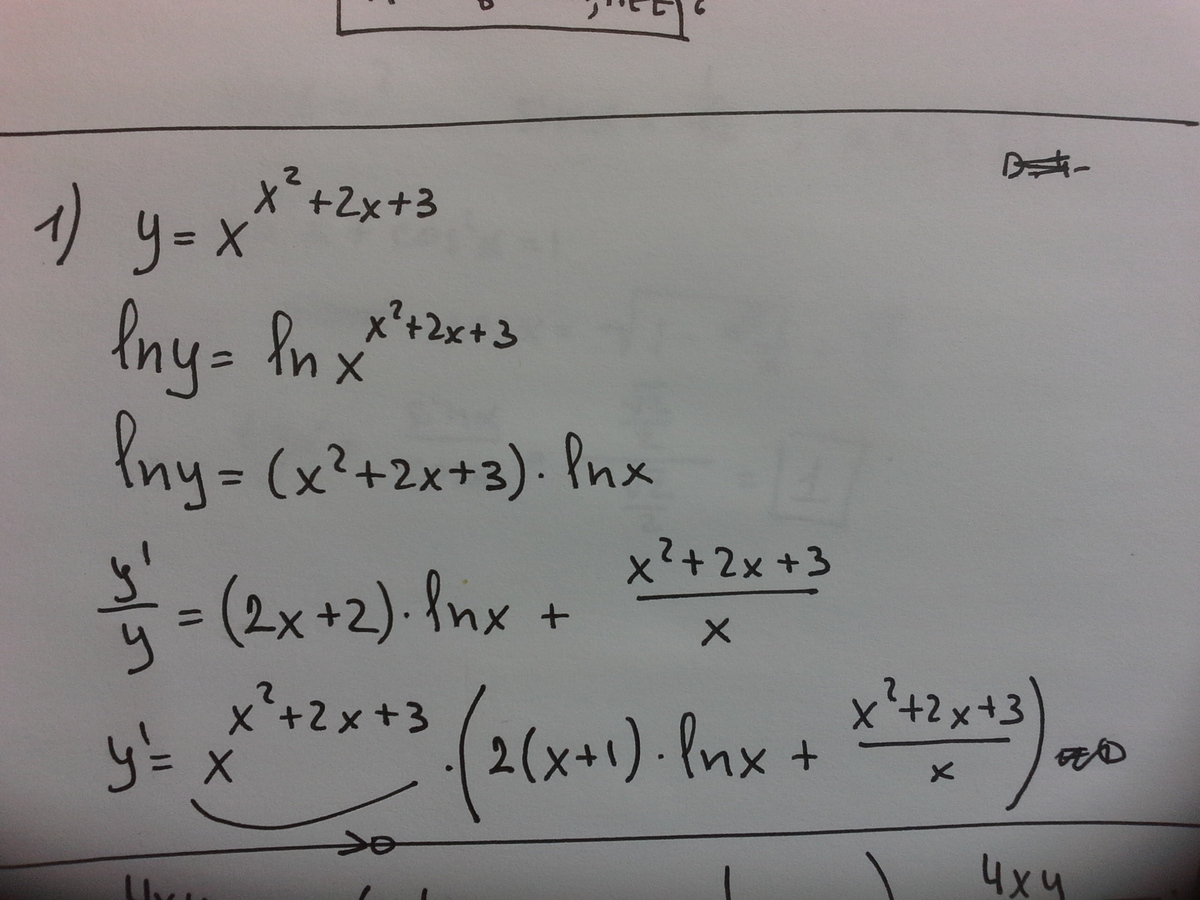 1) y = x^{x²+2x+3}
ln y = ln x^{x²+2x+3}
ln y = (x²+2x+3) · ln x
y'/y = (2x+2) · ln x + (x²+2x+3)/x
y' = x^{x²+2x+3} · (2(x+1) · ln x + (x²+2x+3)/x)
4xy